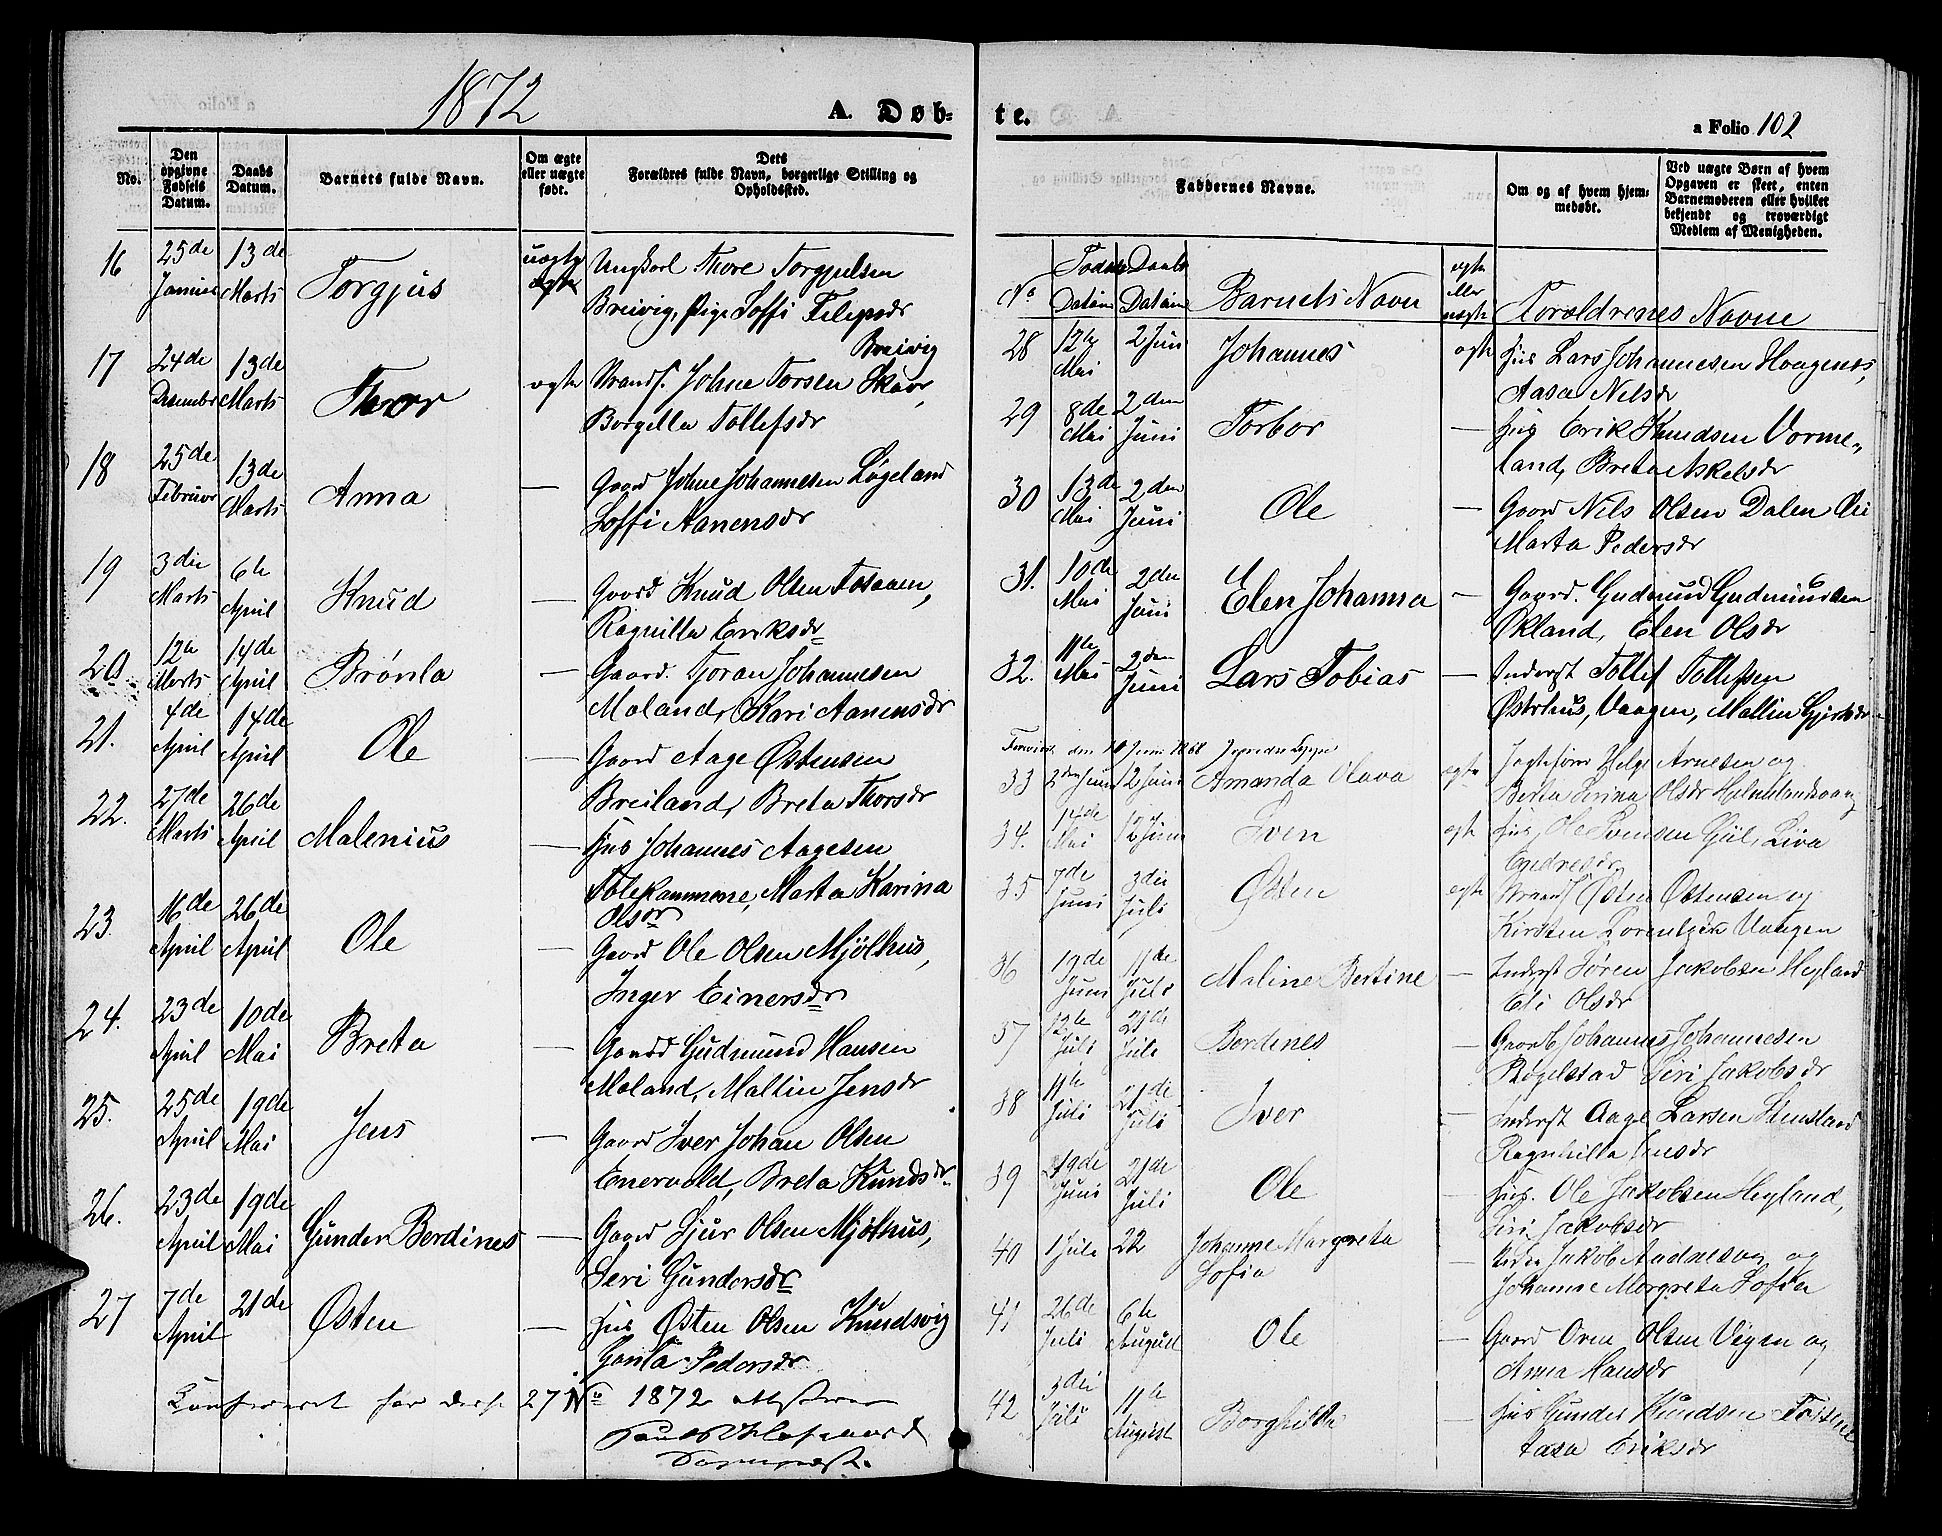 1872
A. Døb-
te.
a Folio 102
No.
Den opgivne Fødsels Datum.
Daabs Datum.
Barnets fulde Navn.
Om ægte eller uægte født.
Dets Forældres fulde Navn, borgerlige Stilling og Opholdssted.
16 25de Januar 13de Marts Torgjus uægte Ungkarl Thore Torgjulsen
Breivig, Pige Soffi Filipsdr
Breivig
17 24de December 13de Marts Thor ægte Strands. Johne Torsen Skaar,
Borgella Tollefsdr
18 25de Februar 13de Marts Anna — Gaard Johne Johannesen Løgeland
Soffi Aanensdr
19 3die Marts 6te April Knud — Gaard Knud Olsen Tosaaen,
Ragnilla Eriksdr
20 12te Marts 14de April Brønla — Gaard. Tjoran Johannesen
Moland, Kari Aanensdr
21. 4de April 14de April Ole — Gaard Aage Østensen
Breiland, Breta Thorsdr
22. 27de Marts 26de April Malenius — Hus Johannes Aagesen
Tolekammene, Marta Karina
Olsdr
23. 16de April 26de April Ole — Gaard Ole Olsen Mjølhus,
Inger Einersdr
24. 23de April 10de Mai Breta — Gaard Gudmund Hansen
Moland, Maltin Jensdr
25. 25de April 19de Mai Jens — Gaard Iver Johan Olsen
Enervold, Breta Knudsdr
26. 23de April 19de Mai Gunder Berdines — Gaard Sjur Olsen Mjølhus,
Seri Gundersdr
27 7de April 21de Østen — Hus Østen Olsen Knudsvig
Gonla Pedersdr
Konfereret for disse 27 No 1872
Faddernes Navne.
Om og af hvem hjemmedøbt.
Ved uægte Børn af hvem Opgaven er skeet, enten Barnemoderen eller hvilket bekjendt og troværdigt Medlem af Menigheden.
No Føds Datum Daabs Datum Barnets Navn ægte eller uægte Forældrenes Navne
28 12te Mai 2 Juni Johannes ægte Hus Lars Johannesen Haagenes,
Aasa Nilsdr
29 8de Mai 2den Juni Torbor — Hus Erik Knudsen Vorme-
land, Breta Askelsdr
30 13de Mai 2den Juni Ole — Gaard Nils Olsen Dalen
Marta Pedersdr
31. 10de Mai 2den Juni Elen Johanna — Gaard. Gudmund Gudmundsen
Økland, Elen Olsdr
32. 11te Mai 2den Juni Lars Tobias — Inderst Tollef Tollefsen
Østerhus, Vaagen, Mallin Gjertsdr
33 2den Juni 12 Juni Amanda Olava ægte Jagtefører Helge Arnesen og
Berta Serina Olsdr
34. 14de Mai 12 Juni Sven ægte Hus Ole Svensen Giil, Liva
Endresdr
35 7de Juni 3die Juli Østen ægte Strands Østen Østensen og
Kirsten Lorentzdr Vaagen
36 19de Juni 11te Juli Maline Bertine — Inderst Søren Jakobsen Heyland
Eli Olsdr
37 12te Juli 21de Juli Berdines — Gaard Johannes Johannesen
Bøgelstad Seri Jakobsdr
38 11te Juli 21de Juli Iver — Inderst Aage Larsen Stensland
Ragnhilla Jensdr
39 19de Juni 21de Juli Ole — Hus. Ole Jakobsen Heyland,
Siri Jakobsdr
40 1 Jule 22 Johanne Margreta
Sofia Jakob Andnesvaag og
Johanne Morgreta Sofia
41 26de Juli 6te August Ole — Gaard Oren Olsen Vigen og
Anna Hansdr
42 3die Juli 11te August Borghilda — Hus Gunder Knudsen
Aasa Eriksdr